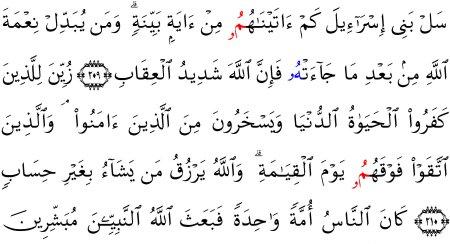 سَلْ بَنِى إِسْرَٰٓءِيلَ كَمْ ءَاتَيْنَٰهُمُۥ مِنْ ءَايَةِۭ بَيِّنَةٖۗ وَمَن يُبَدِّلْ نِعْمَةَ
ٱللَّهِ مِنۢ بَعْدِ مَا جَآءَتْهُۥ فَإِنَّ ٱللَّهَ شَدِيدُ ٱلْعِقَابِ ٢٠٩ زُيِّنَ لِلَّذِينَ
كَفَرُواْ ٱلْحَيَوٰةُ ٱلدُّنْيَا وَيَسْخَرُونَ مِنَ ٱلَّذِينَ ءَامَنُواْۘ وَٱلَّذِينَ
ٱتَّقَوْاْ فَوْقَهُمُۥ يَوْمَ ٱلْقِيَٰمَةِۗ وَٱللَّهُ يَرْزُقُ مَن يَشَآءُ بِغَيْرِ حِسَابٖ
٢١٠ كَانَ ٱلنَّاسُ أُمَّةٗ وَٰحِدَةٗ فَبَعَثَ ٱللَّهُ ٱلنَّبِيِّـۧنَ مُبَشِّرِينَ